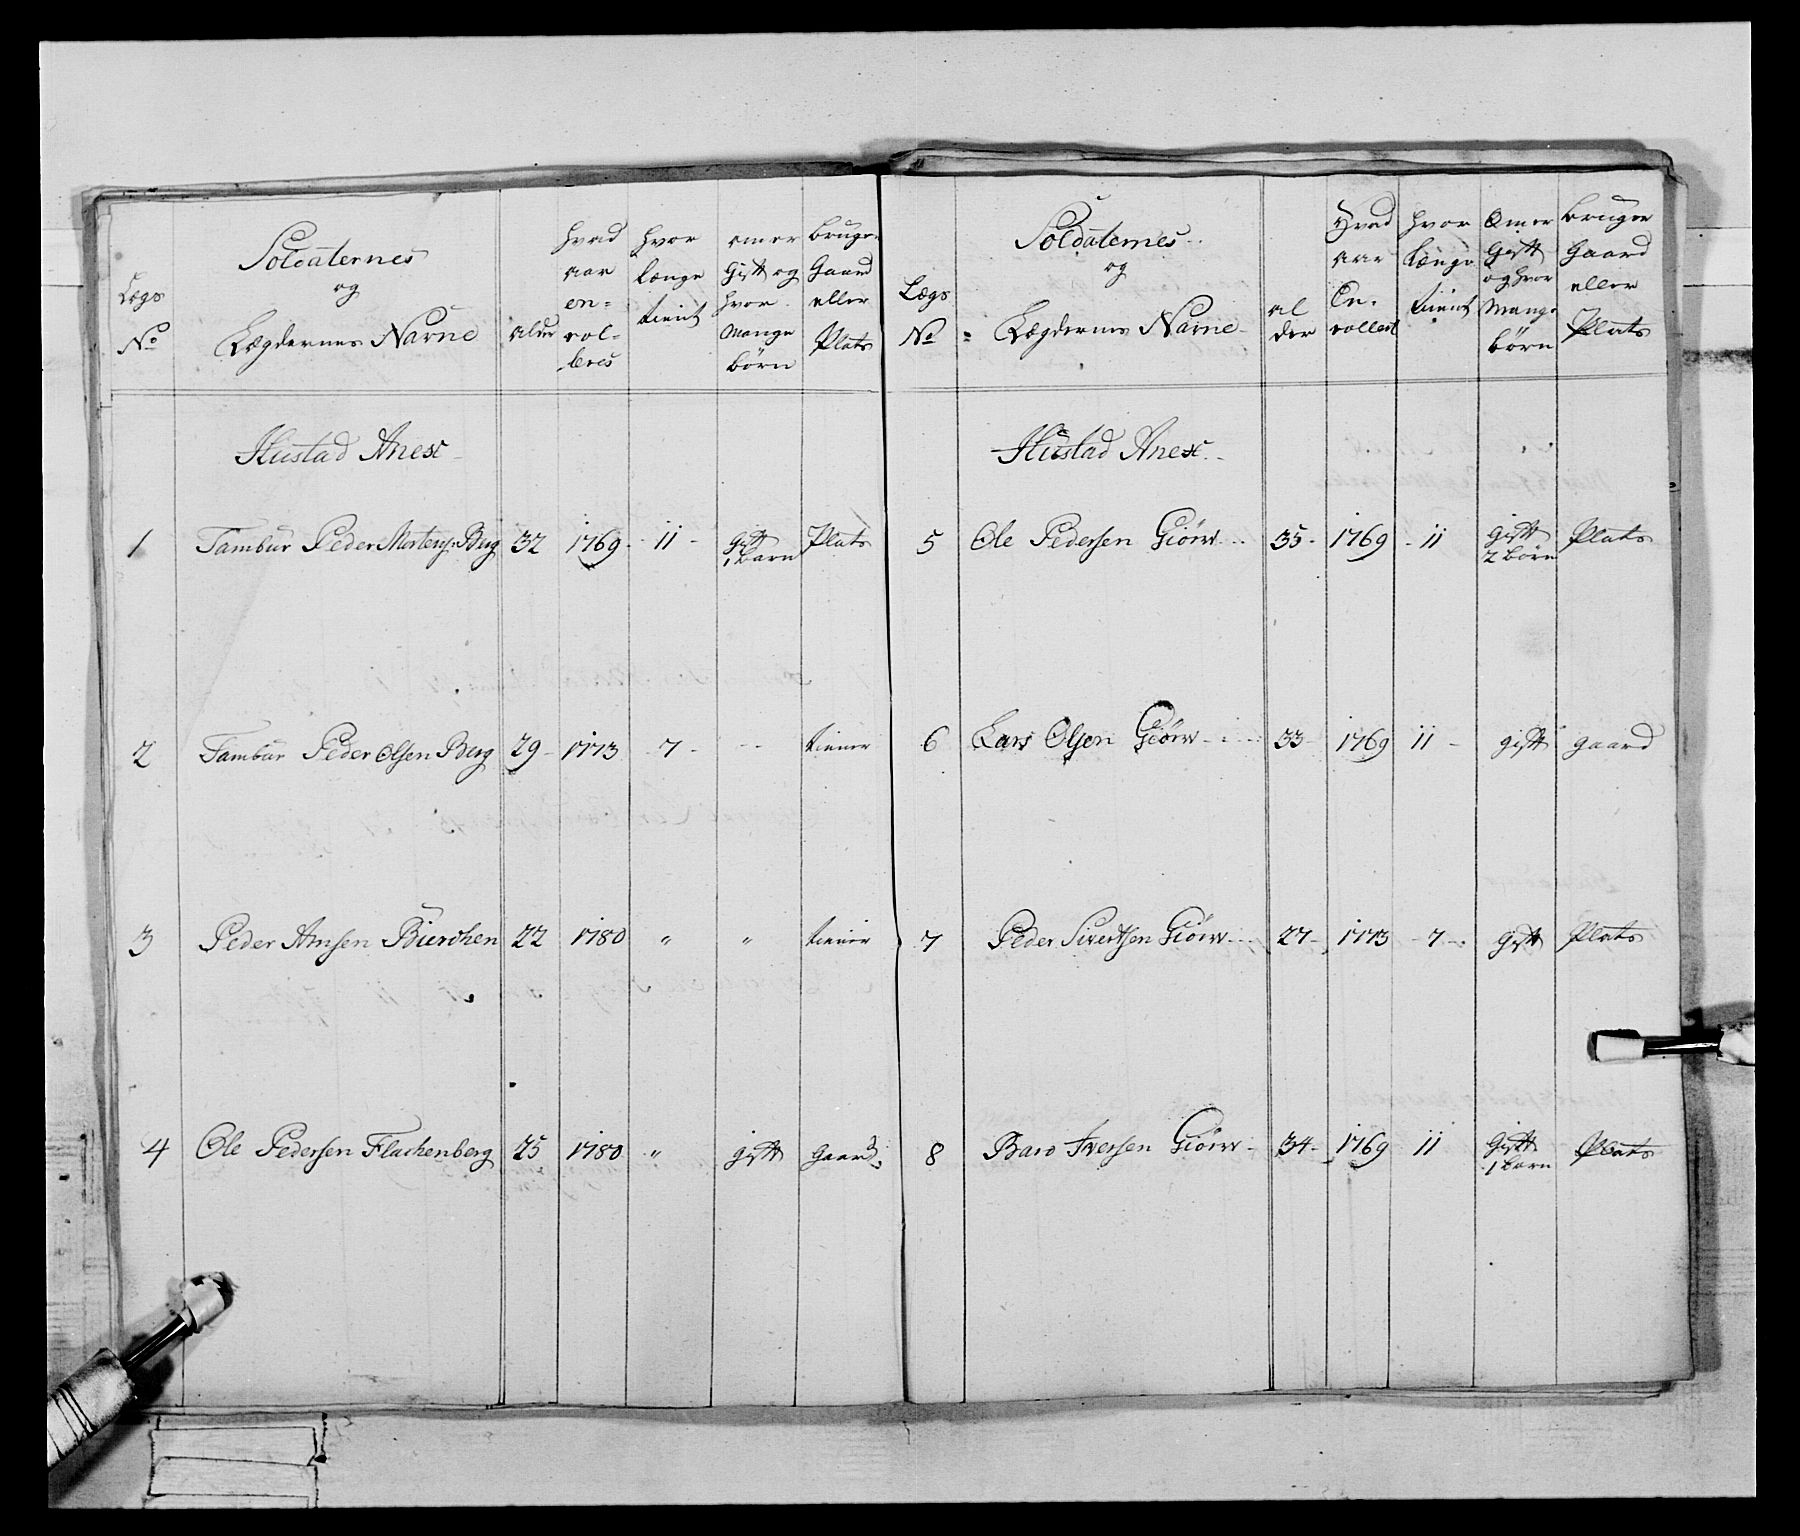 Lægs
No
Soldaternes
og
Lægdernes Navne
alder
hvad
aar
en=
rol=
leres
hvor
længe
tient
om er
Gift og
hvor
Mange
børn
bruger
Gaard
eller
Plats
Hustad Anex
1 Tambur Peder Mortens: Berg 32 1769 - 11 - Gift 1 barn Plats
2 Tambur Peder Olsen Berg 29 - 1773 - 7 - - - tiener
3 Peder Arnsen Bierchen 22 1780 " " tiener
4 Ole Pedersen Flachenberg 25 1780 " gift Gaard
Lægs
No
Soldaternes
og
Lægdernes Navne
al
der
Hvad
aar
En-
rolleret
hvor
længe
tient
Om er
Gift
og hvor
Mange
børn
bruger
Gaard
eller
Plats
Hustad Anex
5 Ole Pedersen Giörv 35 - 1769 - 11 gift 2 börn Plats
6 Lars Olsen Giörv 33 - 1769 11 - gift gaard
7 Peder Sivertsen Giörv 27 - 1773 - 7 - gift Plats
8 Baro Iversen Giörv 34 - 1769 11 Gift 1 barn Plats